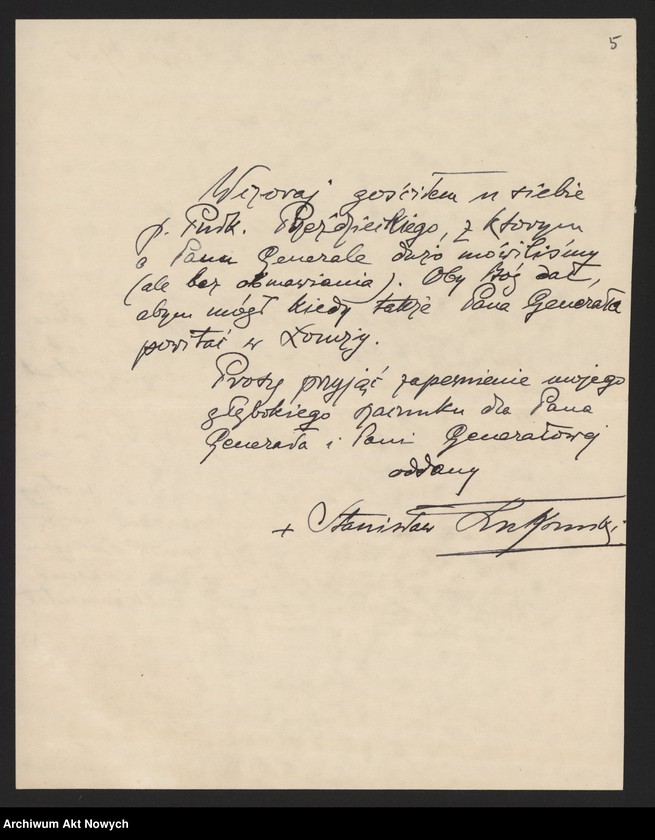 5
Wczoraj gościłem u siebie
p. Pułk. Przeździeckiego, z którym
o Panu Generale dużo mówiliśmy
(ale bez obmawiania). Oby Bóg dał,
abym mógł kiedy także Pana Generała
powitać w Łomży.
Proszę przyjąć zapewnienie mojego
głębokiego szacunku dla Pana
Generała i Pani Generałowej
oddany
+ Stanisław Łukomski
Archiwum Akt Nowych